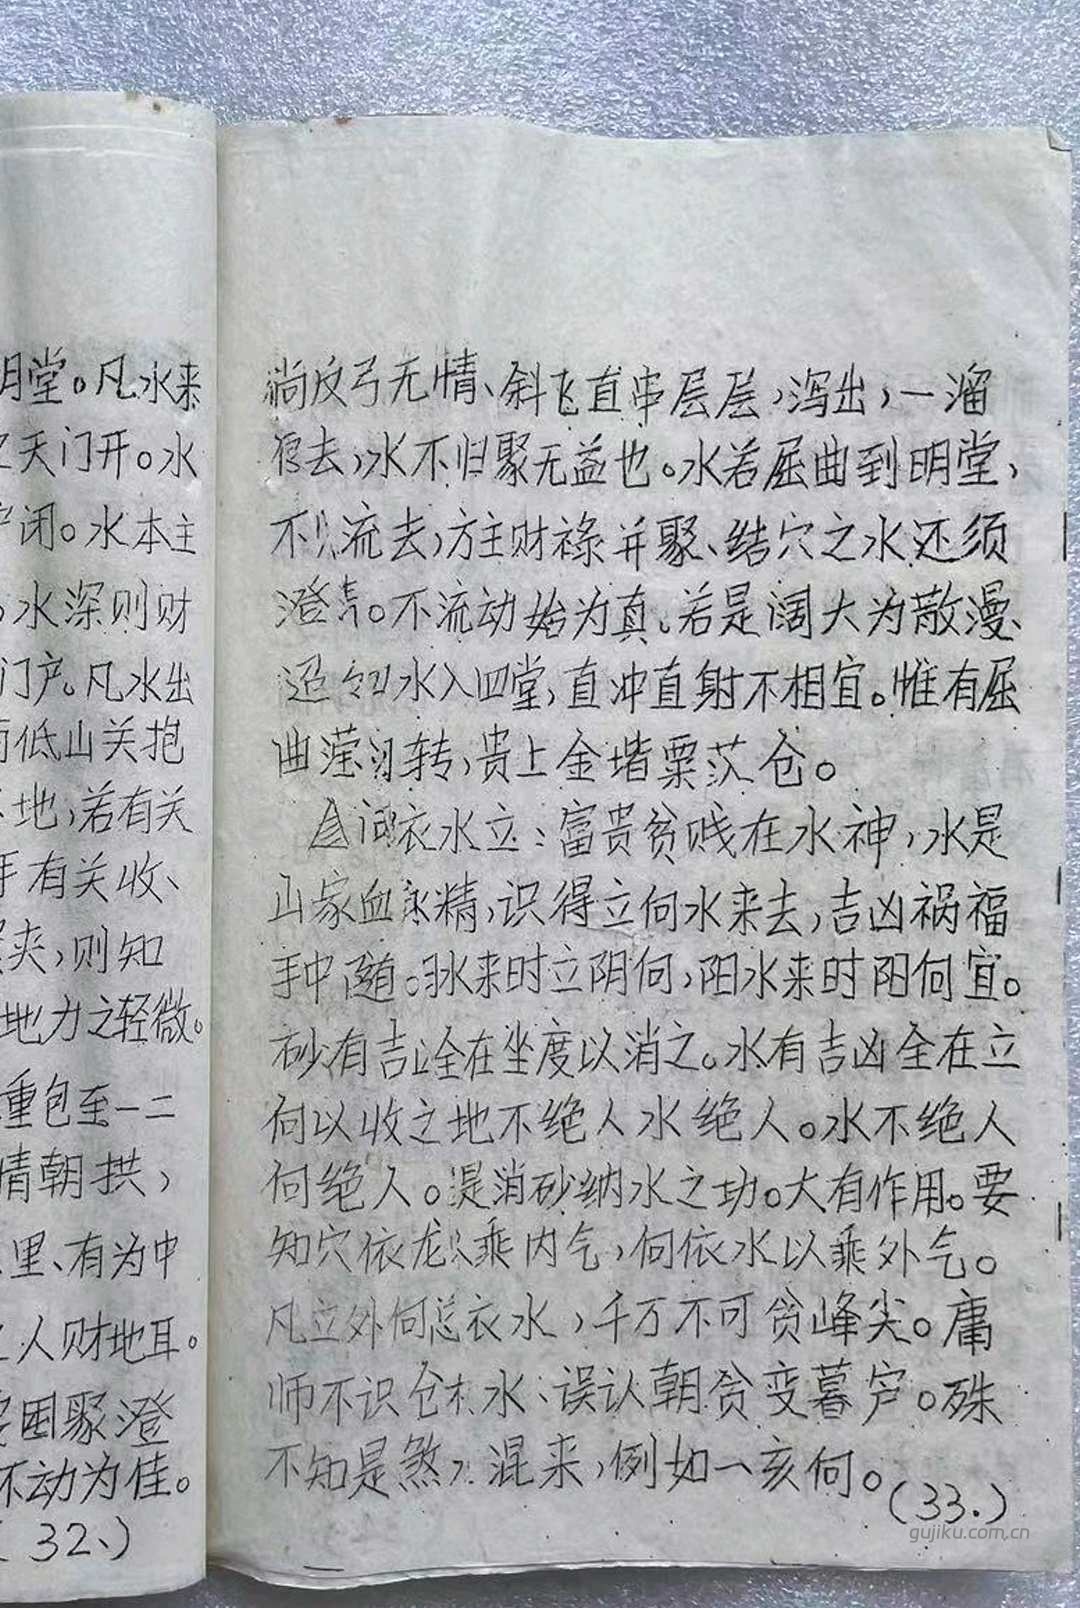 明堂。凡水来
天门开。水
闭。水本主
水深则财
门户。凡水出
低山关抱
地，若有关
有关收、
夹，则知
地力之轻微。
重包至一二
情朝拱，
里、有为中
人财地耳。
困聚澄
不动为佳。
(32、)
淌反弓无情、斜飞直串层层，泻出，一溜
去，水不归聚无益也。水若屈曲到明堂，
不流去，方主财禄并聚、结穴之水还须
澄清。不流动始为真。若是阔大为散漫、
水入明堂，直冲直射不相宜。惟有屈
曲转，贵上金堦粟茨仓。
衣水立：富贵贫贱在水神，水是
山家血脉精，识得立向水来去，吉凶祸福
手中随。水来时立阴向，阳水来时阳向宜。
砂有吉凶全在坐度以消之。水有吉凶全在立
向以收之地不绝人水绝人。水不绝人
向绝人。是消砂纳水之功。大有作用。要
知穴依龙以乘内气，向依水以乘外气。
凡立外向总衣水，千万不可贪峰尖。庸
师不识水、误认朝贫变暮穷。殊
不知是煞混来，例如一亥向。
(33.)
gujiku.com.cn